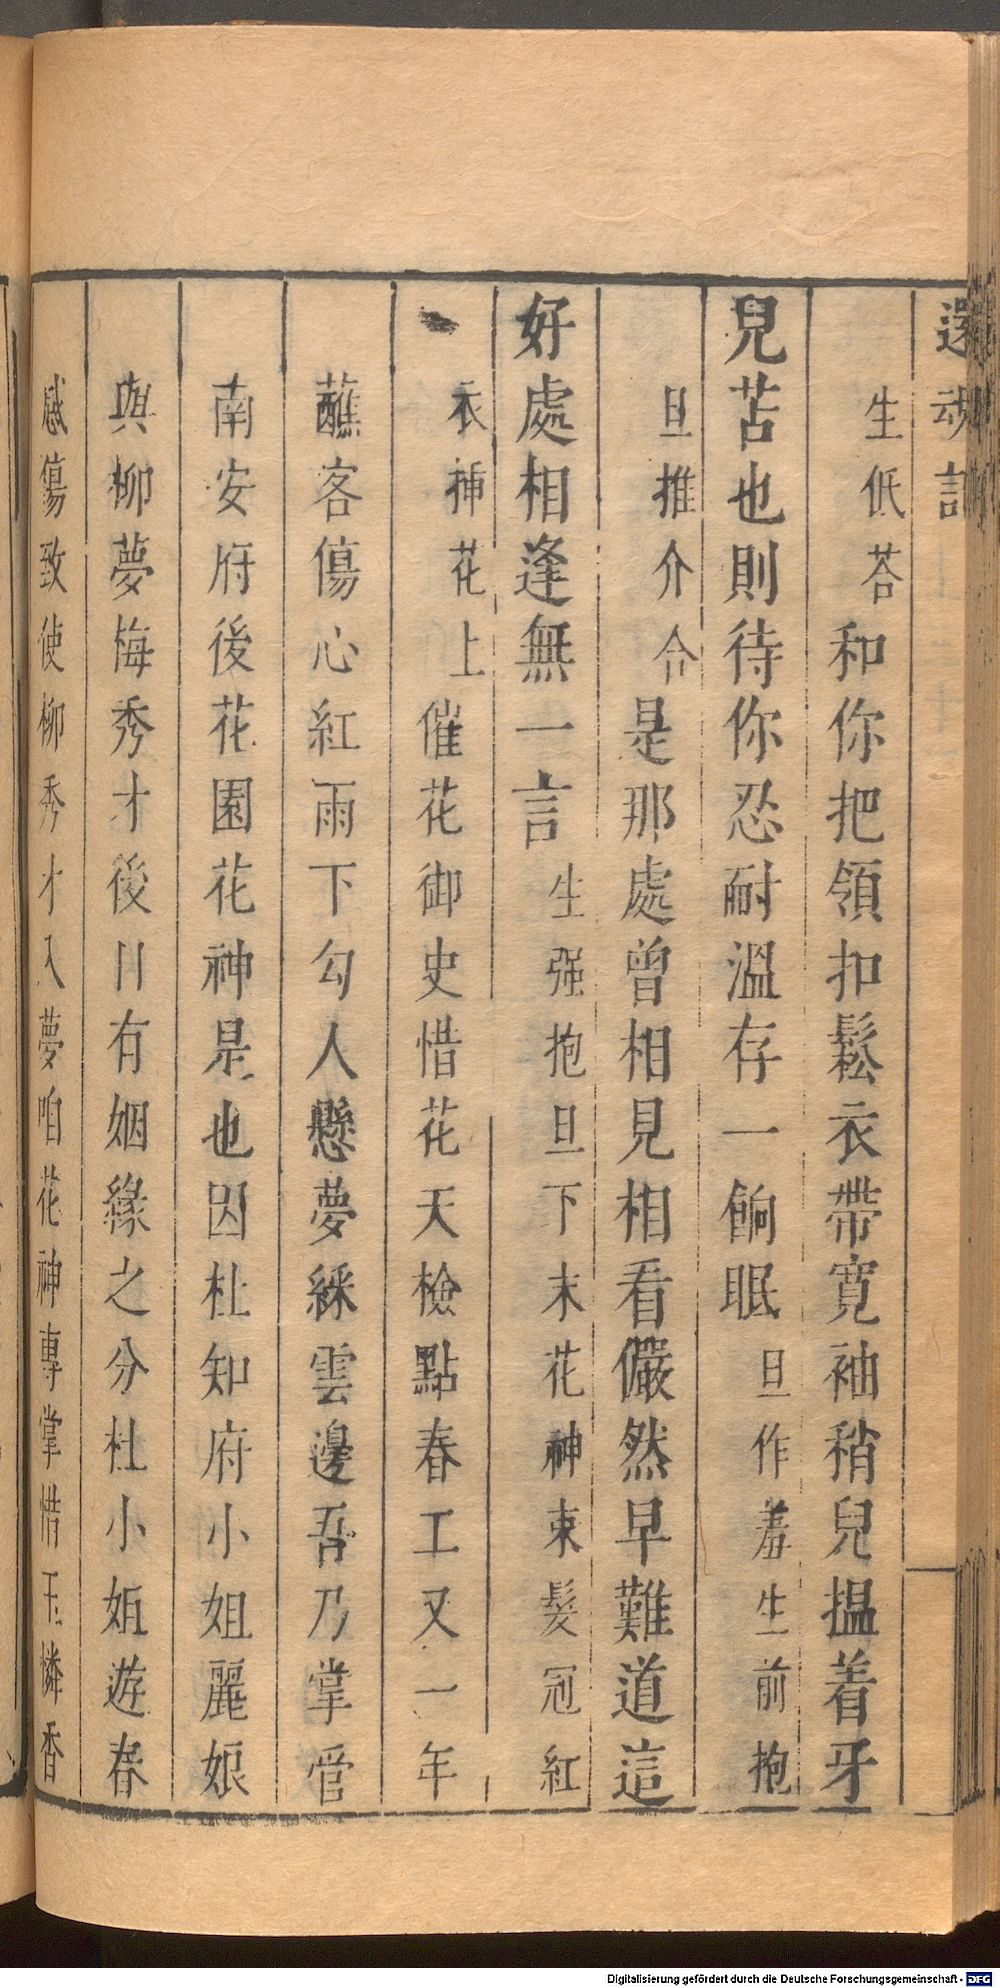 還魂記
生低荅和你把領扣鬆衣帶寬袖稍兒揾着牙
兒苫也則待你忍耐溫存一餉眠旦作羞生前抱
旦推介合是那處曾相見相看儼然早難道這
好處相逢無一言生强抱旦下末花神束髮冠紅
衣揷花上催花御史惜花天檢點春工又一年
蘸客傷心紅雨下勾人懸夢綵雲邊吾乃掌管
南安府後花園花神是也因杜知府小姐麗娘
與柳夢梅秀才後日有姻緣之分杜小姐遊春
感傷致使柳秀才入夢咱花神專掌惜玉憐香
Digitalisierung gefördert durch die Deutsche Forschungsgemeinschaft - DFG